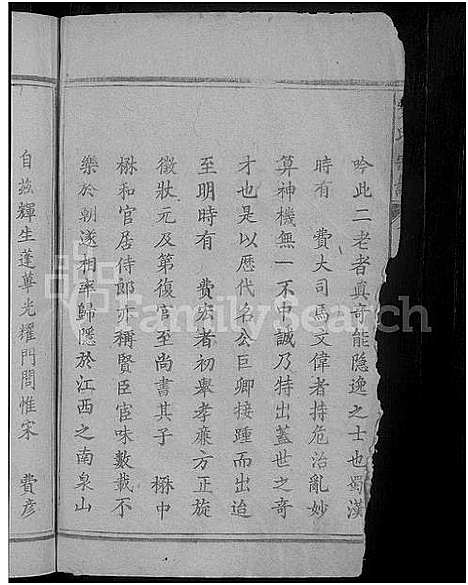 吟此二老者真可能隱逸之士也蜀漢
時有 費大司馬文偉者持危治亂妙
算神機無一不中誠乃特出蓋世之奇
才也是以歷代名公巨卿接踵而出迨
至明時有 費宏者初舉孝廉方正旋
徵狀元及第復官至尚書其子 楙中
楙和官居侍郎亦稱賢臣宦味數載不
樂於朝遂相率歸隱於江西之南泉山
自茲輝生蓬蓽光耀門閭惟宋 費彥
FamilySearch